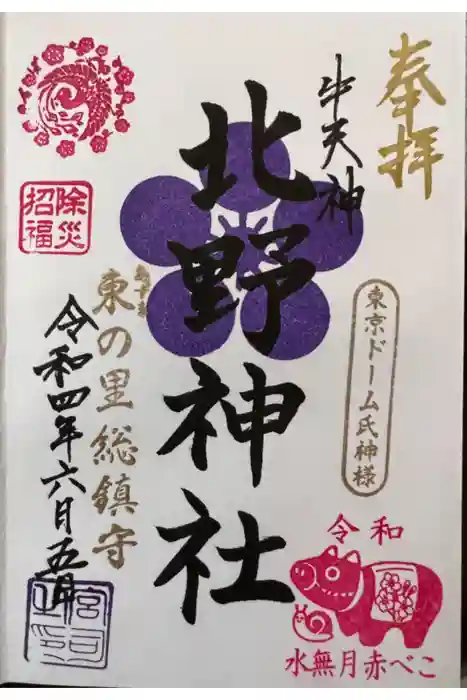 奉拝
牛天神
東京ドーム氏神様
北野神社
東の里総鎮守
令和四年六月五日
除災
招福
令和
水無月赤べこ